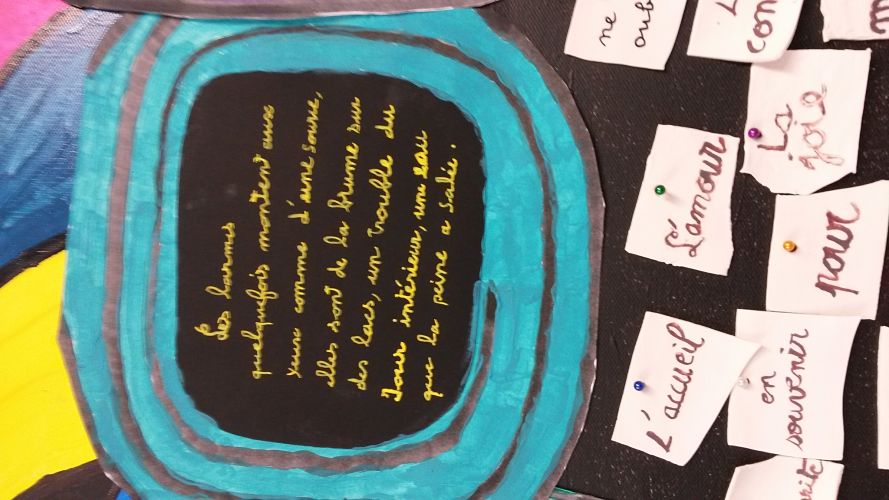 Les larmes
quelquefois montent aux
yeux comme d'une source,
elles sont de la brume sur
des lacs, un trouble du
Jour intérieur, une eau
que la peine a salée.
ne
oub
con
La
joie
L'amour
pour
L'accueil
en
souvenir